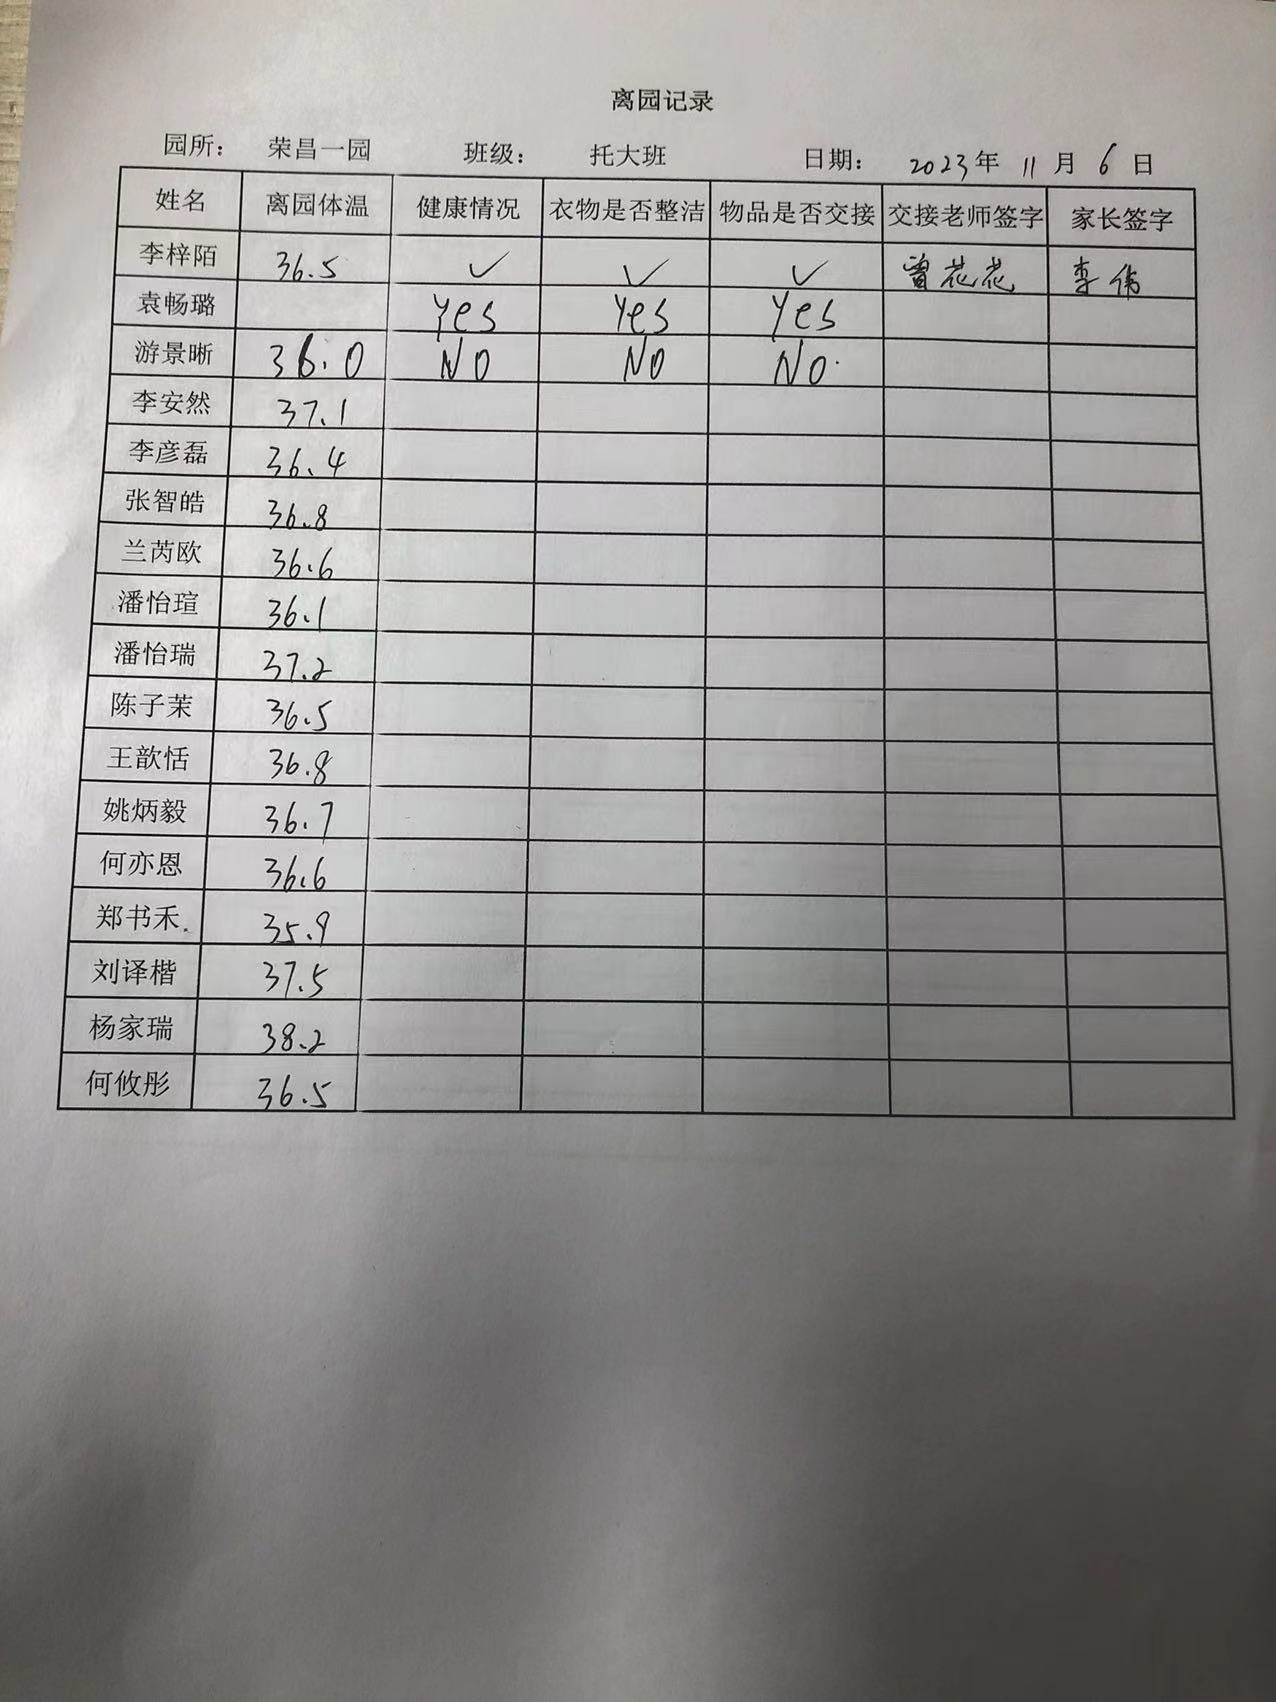 离园记录
园所： 荣昌一园 班级： 托大班 日期： 2023年 11月 6日
姓名 离园体温 健康情况 衣物是否整洁 物品是否交接 交接老师签字 家长签字
李梓陌 36.5 ✓ ✓ ✓ 曾花花 李伟
袁畅璐 Yes Yes Yes
游景晰 36.0 NO NO NO
李安然 37.1
李彦磊 36.4
张智皓 36.8
兰芮欧 36.6
潘怡瑄 36.1
潘怡瑞 37.2
陈子茉 36.5
王歆恬 36.8
姚炳毅 36.7
何亦恩 36.6
郑书禾 35.9
刘译楷 37.5
杨家瑞 38.2
何攸彤 36.5